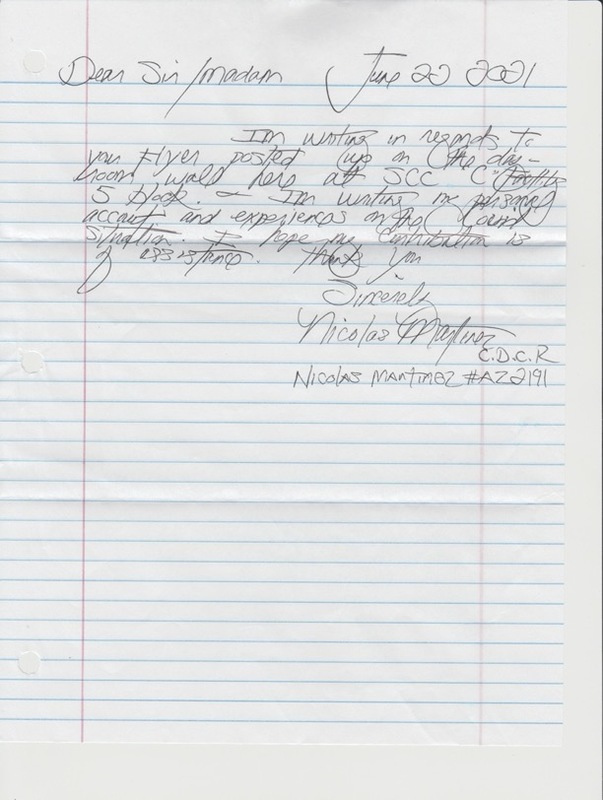 Dear Sir/madam June 22 2021
Im writing in regards to
you Flyer posted up on the day-
room wall here at SCC "C"
5 block. Im writing me personal
account and experiences on the Covid
situation. I hope my contribution is
of assistance. Thank you
Sincerely
Nicolas Martinez
C.D.C.R
NICOLAS MARTINEZ #AZ2191